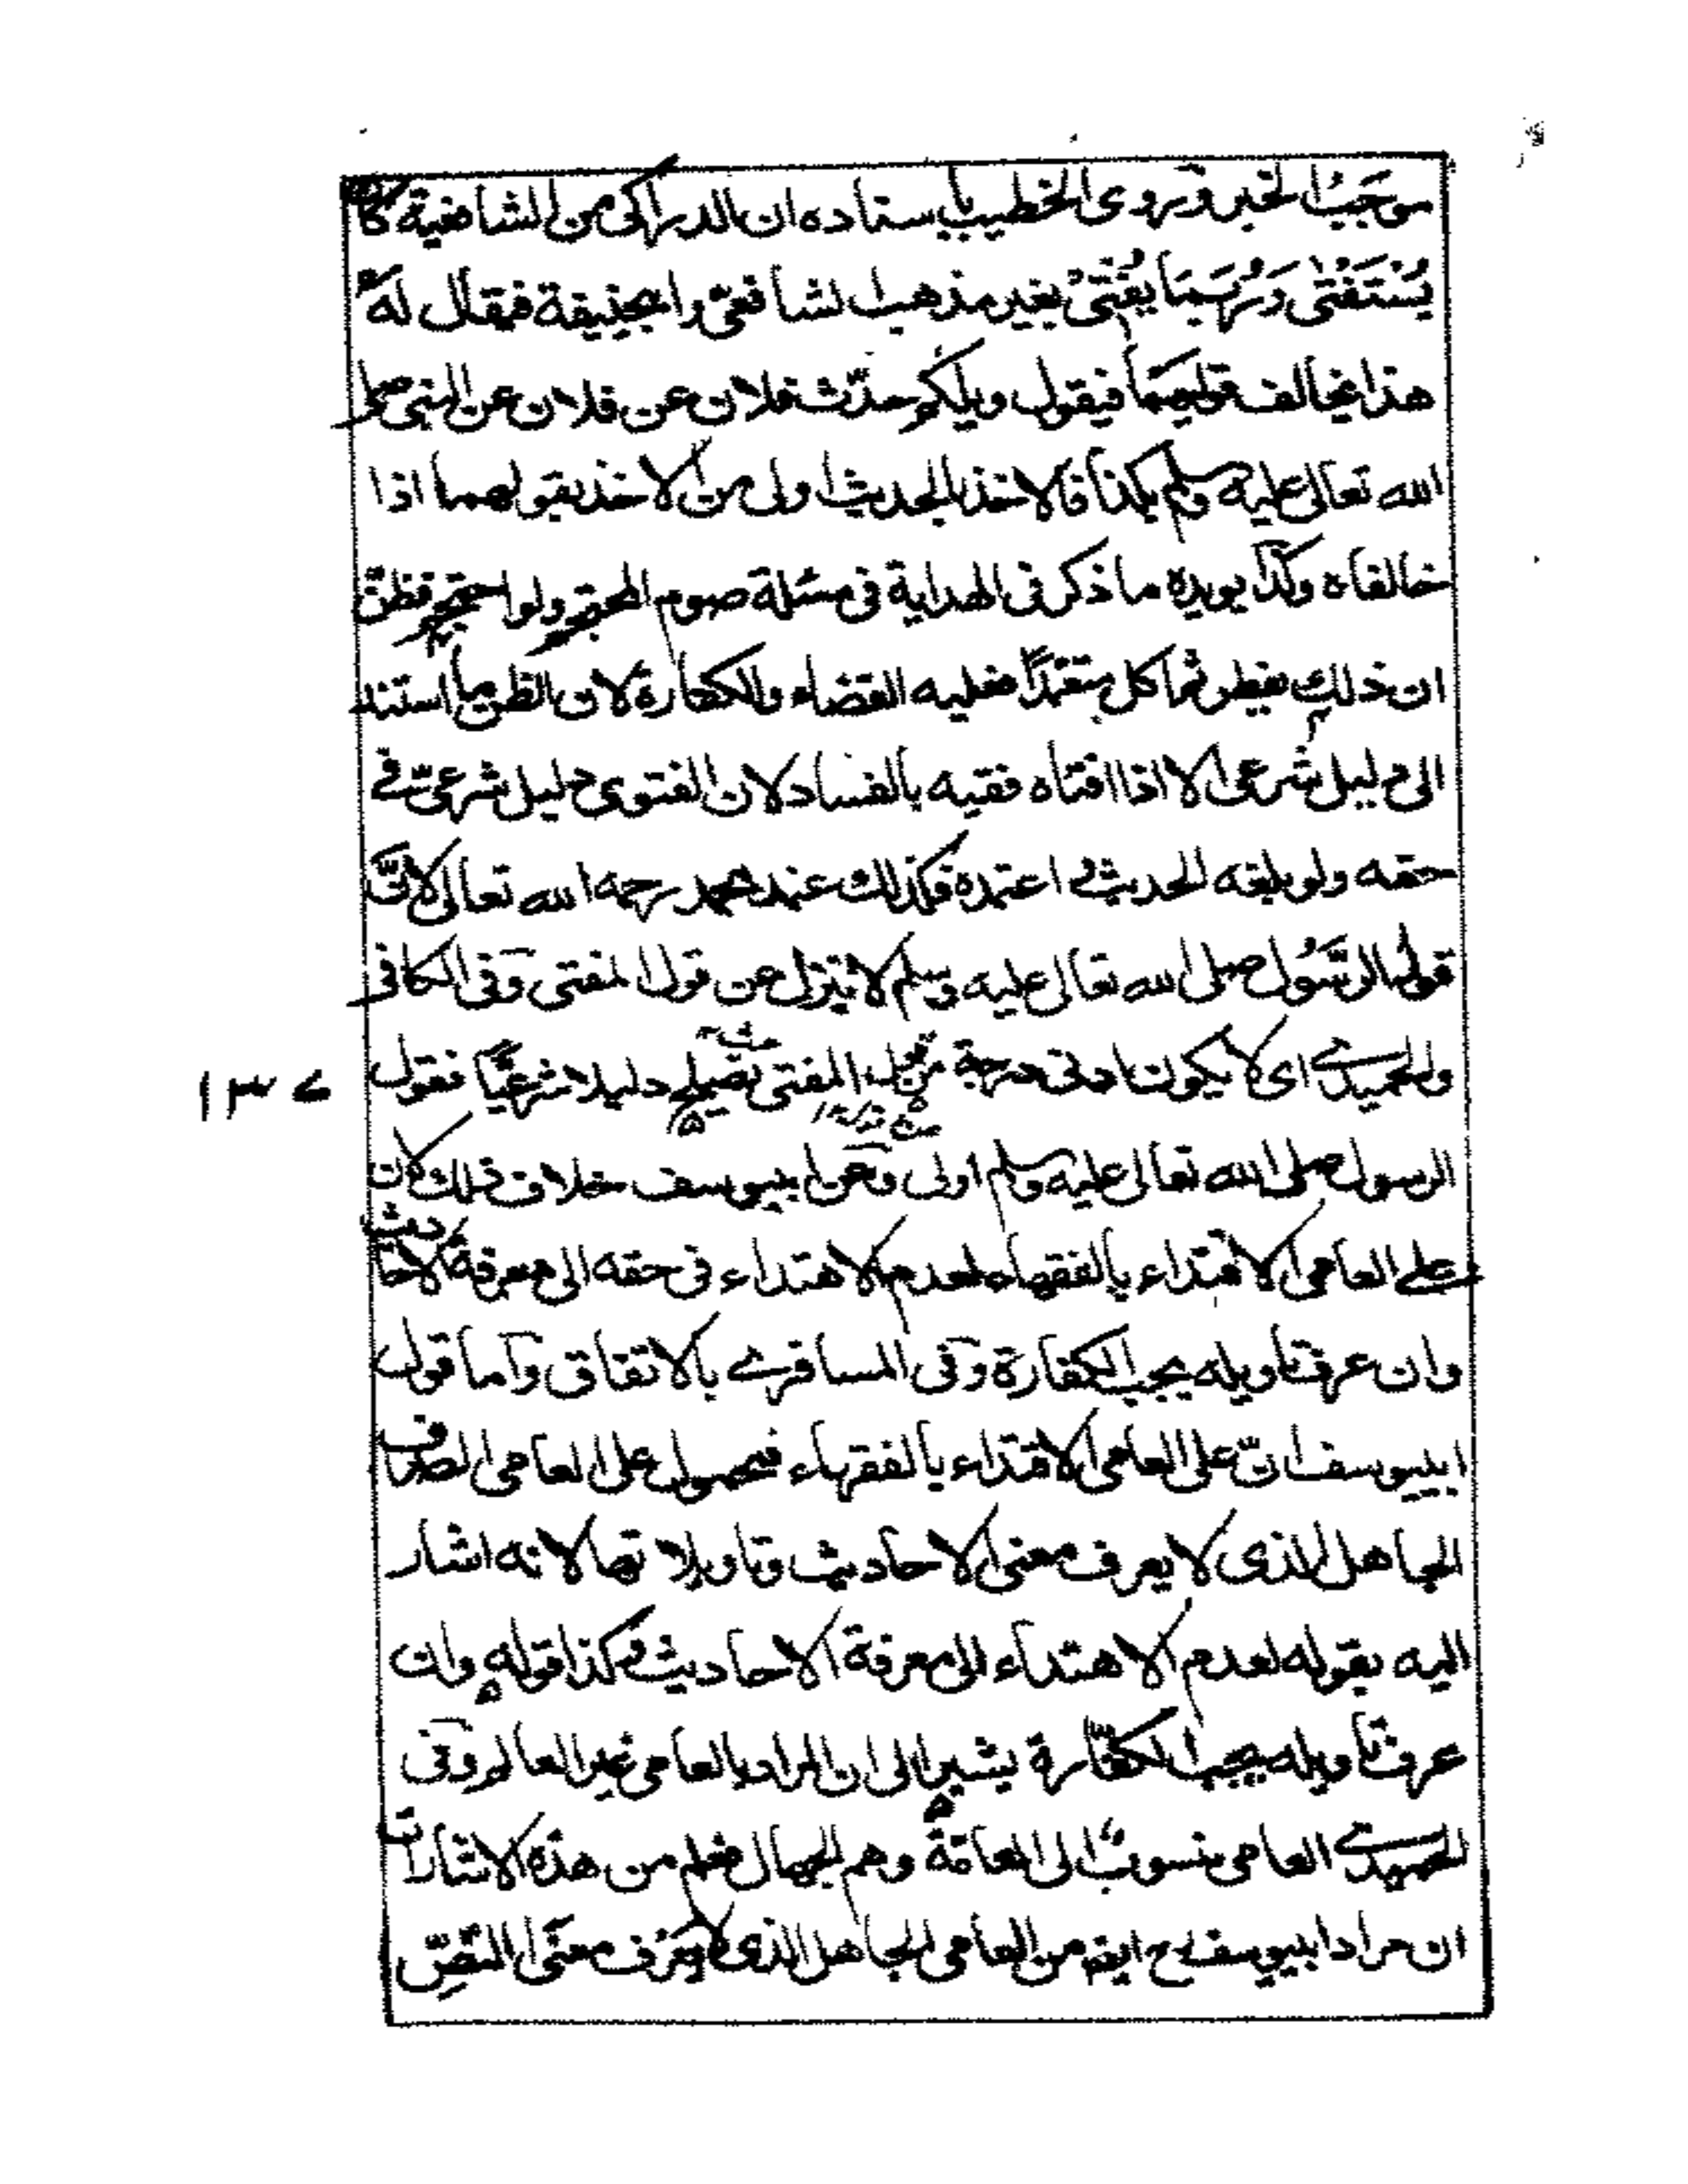 موجَبُ الخبر وروى الخطيب باسناده ان الداركى من الشافعية كان
يُسْتَفْتٰى وَرُبَمَا يُفْتِىْ بغير مذهب الشافعىّ وابيحنيفة فيقال لهٗ
هذا يخالف قوليهما فيقول ويلكم حدّث فلان عن فلان عن النبى صلى
الله تعالى عليه وسلم بكذا فالاخذ بالحديث اولى من الاخذ بقولهما اذا
خالفاه وكذا يويده ما ذكر فى الهداية فى مسئلة صوم المحتجم ولو احتجم فظنّ
ان ذلك يفطر ثم اكل متعمدًا فعليه القضاء والكفارة لان الظن ما استند
الى دليل شرعى الا اذا افتاه فقيه بالفساد لان الفتوى دليل شرعىّ فے
حقه ولو بلغه الحديث و اعتمده فكذلك عند محمد رحمه الله تعالى لانّ
قول الرّسُول صلى الله تعالى عليه وسلم لا ينزل عن قول المفتى وفى الكافى
والحميدے اى لا يكون ادنى درجة من قول المفتى يصلح دليلا شرعيًّا فقول
١٣٧
الرسول صلى الله تعالى عليه وسلم اولى وعن ابييوسف خلاف ذلك لان
علے العامى الاقتداء بالفقهاء لعدم الاهتداء فى حقه الى معرفة الاحاديث
وان عرف تاويله يجب الكفارة وفى المسافرے بالاتفاق واما قول
ابييوسف انّ على العامى الاقتداء بالفقهاء فمحمول على العامى الصرف
الجاهل الذى لا يعرف معنى الاحاديث وتاويلاتها لانه اشار
اليه بقوله لعدم الاهتداء الى معرفة الاحاديث وكذا قوله وان
عرف تاويله يجب الكفّارة يشير الى ان المراد بالعامى غير العالم وفى
الحميدے العامى منسوبٌ الى العامّة وهم الجهال فعلم من هذه الاشارات
ان مراد ابييوسف رح ايضا من العامى الجاهل الذى لا يعرف معنى النصِّ